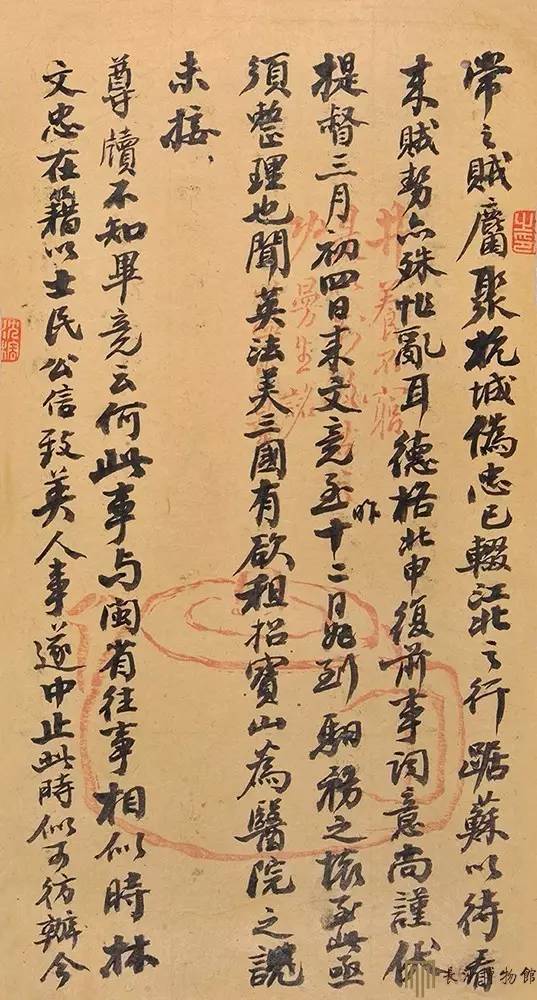 常之賊麕聚杭城偽忠已輟江北之行踞蘇以待看
来賊勢亦殊忙亂耳德格北申復前事詞意尚謹
提督三月初四日来文竟至昨十二日始到馹務之壞至此亟
須整理也聞英法美三國有欲租招寶山為醫院之說
未接
尊牘不知畢竟云何此事与閩省往事相似時林
文忠在籍以士民公信致英人事遂中止此時似可仿辦今
長沙博物館